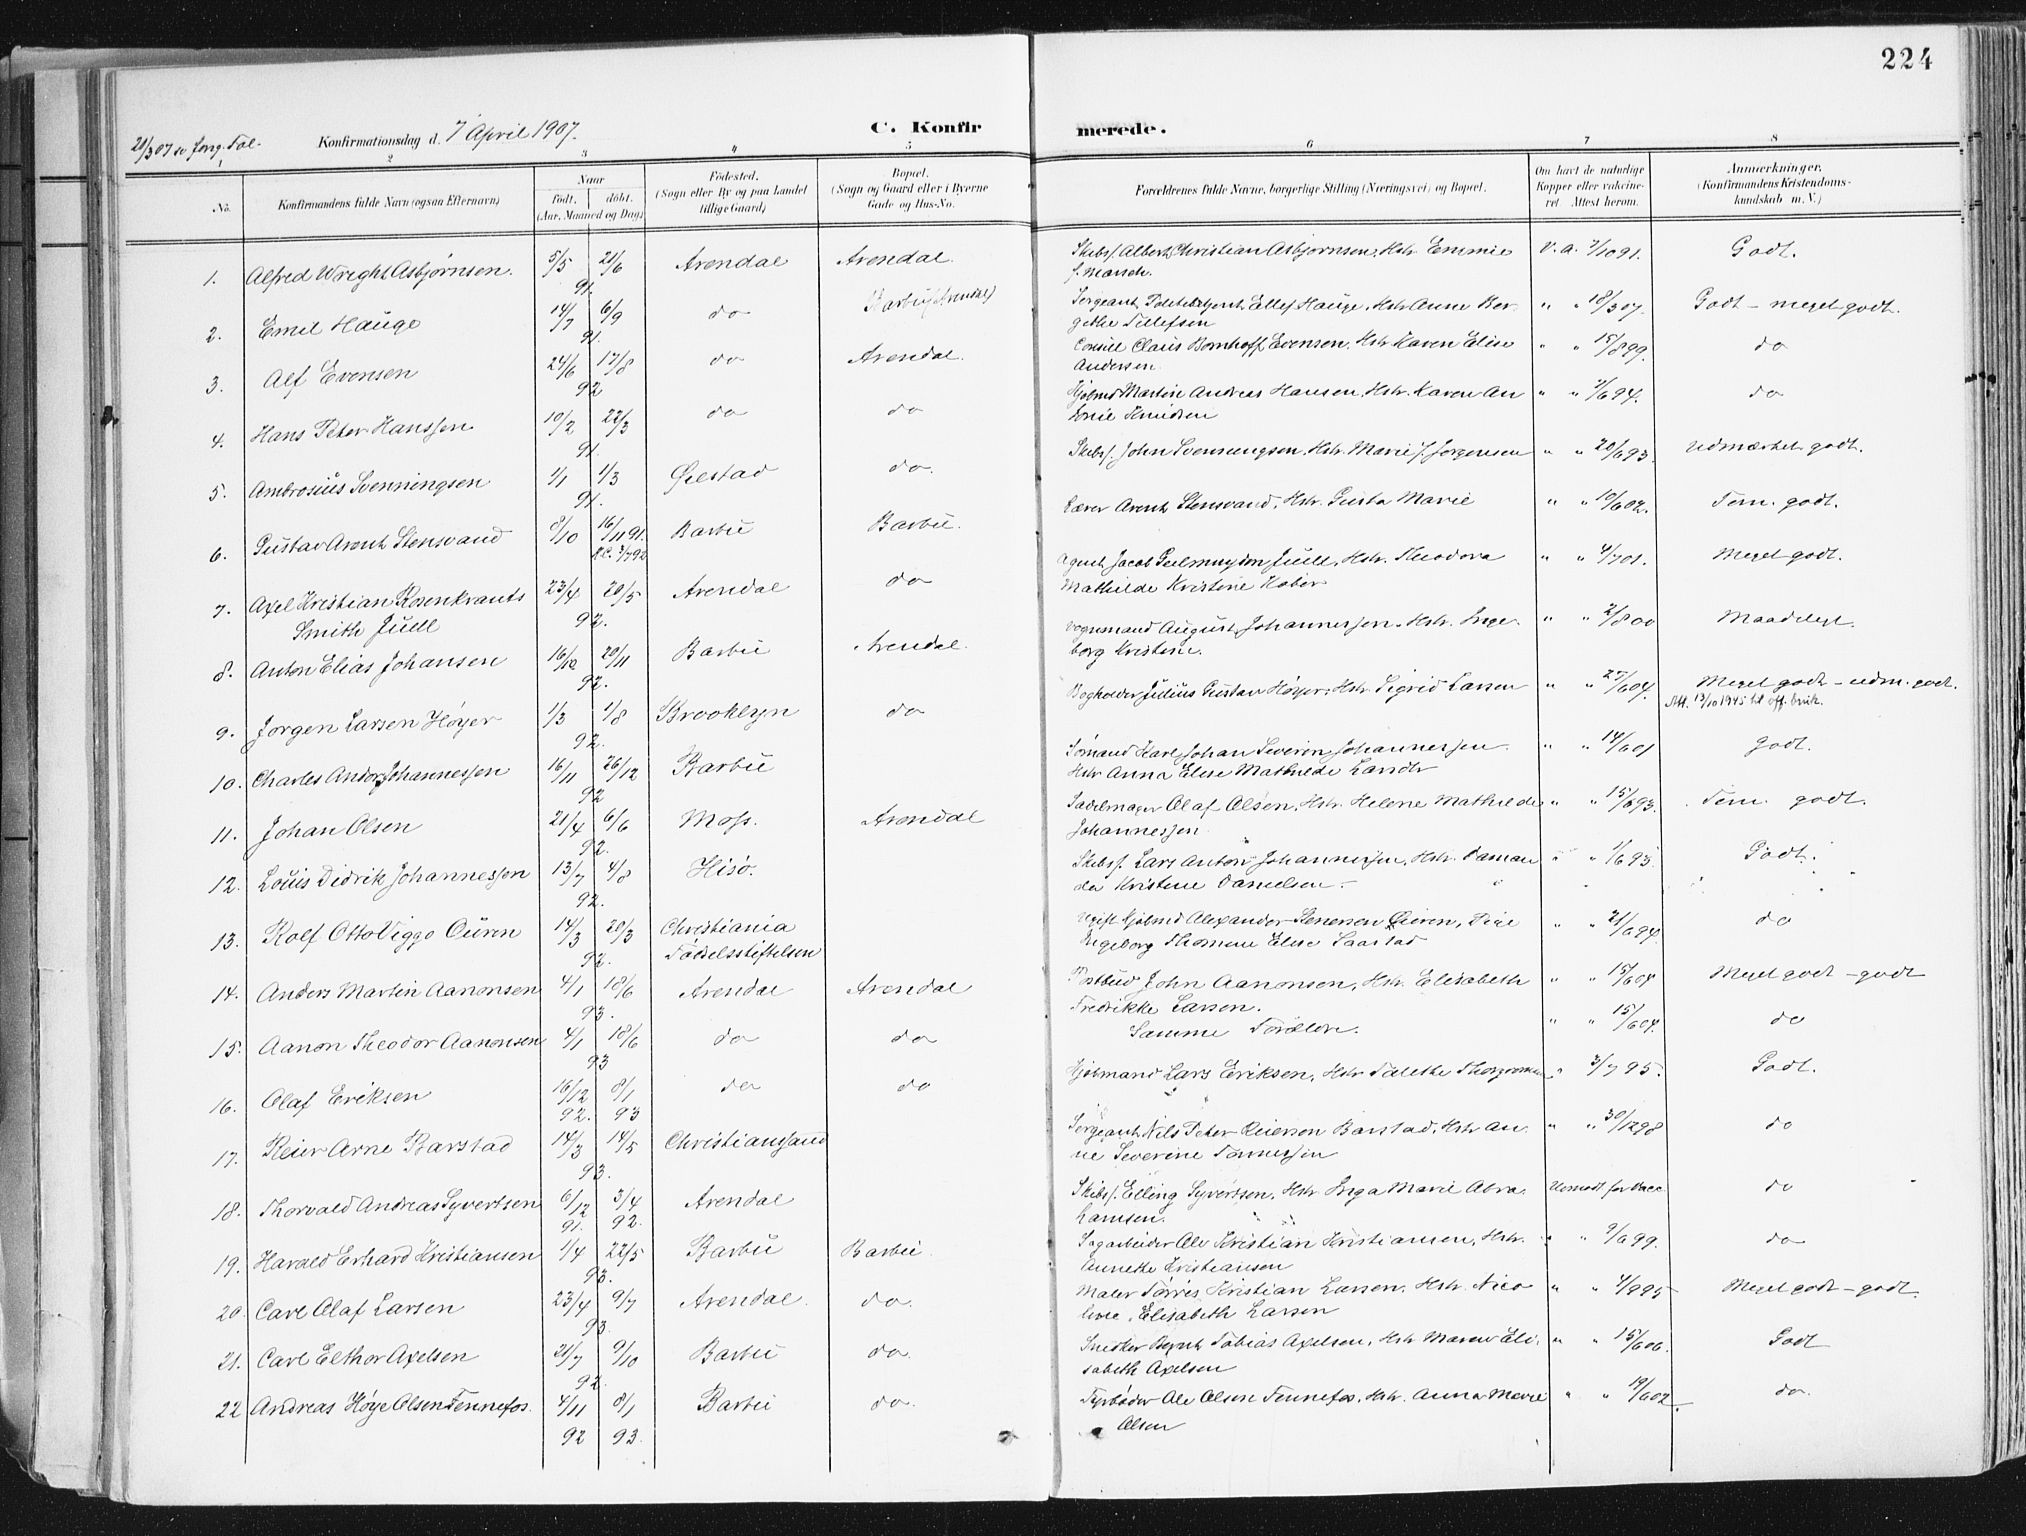 224
21/3 07
Konfirmationsdag d. 7 April 1907.
C. Konfirmerede.
1 2 3 4 5 6 7 8
No. Konfirmandens fulde Navn (ogsaa Efternavn) Naar født. døbt. (Aar, Maaned og Dag) Fødested. (Sogn eller By og paa Landet tillige Gaard) Bopæl. (Sogn og Gaard eller i Byerne Gade og Hus-No. Forældrenes fulde Navne, borgerlige Stilling (Næringsvei) og Bopæl. Om havt de naturlige Kopper eller vakcineret. Attest herom. Anmærkninger. (Konfirmandens Kristendomskundskab m. V.)
1. Alfred Wright Asbjørnsen. 5/5 21/6 91. Arendal Arendal. Skibsf. Albert Christian Asbjørnsen, Hstr Emmie f. Marsch. V. a. 7/10 91. Godt.
2. Emil Hauge 14/7 6/9 91. do Barbu (Arendal) Sergeant, Politibetjent Ellef Hauge, Hstr Anne Bergithe Tellefsen " " 18/3 07. Godt – meget godt.
3. Alf Evensen 24/6 17/8 92 do Arendal. Consul Claus Bornhoff Evensen, Hstr Karen Elise Andersen. " " 15/8 99. do
4. Hans Peter Hanssen 10/2 22/3 91. do do Martin Andreas Hansen, Hstr. Karen Antonie Knudsen " " 2/6 94. do
5. Ambrosius Svenningsen 1/1 1/3 91. Øiestad do. Skibsf. John Svenningsen, Hstr. Marie f. Jørgensen " " 20/6 93. Udmærket godt.
6. Gustav Arent Stensvand 8/10 16/11 91. Barbu Barbu. Lærer Arent Stensvand, Hstr. Gusta Marie " " 10/6 02. Tem. godt.
7. Axel Kristian Rosenkrants Smith Juell 23/4 20/5 92. Arendal do Agent Jacob Geelmuyden Juell, Hstr. Theodora Mathilde Kristine " " 4/7 01. Meget godt.
8. Anton Elias Johansen 16/10 20/11 92. Barbu Arendal. Vognmand August Johannessen, Hstr. Ingeborg Kristine. " " 2/8 00 Maadeligt.
9. Jørgen Larsen Høyer 1/3 1/8 92. Brooklyn do Bogholder Julius Gustav Høyer, Hstr Sigrid Larsen " " 27/6 04. Meget godt – udm. godt.
Att. 13/10 1945 til off. bruk.
10. Charles Andor Johannessen 16/11 26/12 92 Barbu Sømand Karl Johan Severin Johannessen. Hstr Anna Elise Mathilde " " 14/6 01 Godt.
11. Johan Olsen 21/4 6/6 92. Moss. Arendal Sadelmager Olaf Olsen, Hstr. Helene Mathilde Johannessen. " " 15/6 93. Tem. godt.
12. Louis Didrik Johannessen 13/7 4/8 92. Hisø. Skibsf. Lars Anton Johannessen, Hstr. Damanda Kristine Danielsen. " " 1/6 93. Godt.
13. Rolf Otto Viggo Ouren 14/3 20/3 92. Christiania Fødselsstiftelsen Ugift Alexander Ouren, Pige Ingeborg Thomine Elise Saastad " " 21/6 94. do
14. Anders Martin Aanonsen 4/1 18/6 93. Arendal Arendal Postbud John Aanonsen, Hstr. Elisabeth Fredrikke Larsen. " " 15/6 04 Meget godt – godt
15. Aanon Theodor Aanonsen 4/1 18/6 93 do do Samme Forældre. " " 15/6 04. do
16. Olaf Eriksen 16/12 92. 8/1 93 do do Lars Eriksen, Hstr Talethe " 3/7 95. Godt.
17. Reier Arne Barstad 14/3 14/5 93. Christianssand Sergeant Nils Peter Reiersen Barstad, Hstr Anne Severine Tønnessen " " 30/12 98 do
18. Thorvald Andreas Syvertsen 6/12 91. 3/4 92. Arendal Skibsf. Elling Syvertsen, Hstr Inga Marie Abrahamsen. for Vacc do
19. Harald Erhard Kristiansen 1/4 22/5 93. Barbu Barbu. Sagarbeider Ole Kristian Kristiansen, Hstr. Annethe Kristiansen " " 9/6 99. do
20. Carl Olaf Larsen 23/4 9/7 93. Arendal. do. Maler Tørris Kristian Larsen, Hstr. Nicoline Elisabeth Larsen " " 4/9 95 Meget godt – godt.
21. Carl Elthor Axelsen 21/7 9/10 92. Barbu do. Snedker Bernt Tobias Axelsen, Hstr Maren Elisabeth Axelsen " " 15/6 06. Godt
22 Andreas Høye Olsen Tennefos. 4/11 92 8/1 93. Barbu do. Fyrbøder Ole Olsen Tennefos, Hstr. Anna Marie Olsen " " 19/6 02. do.